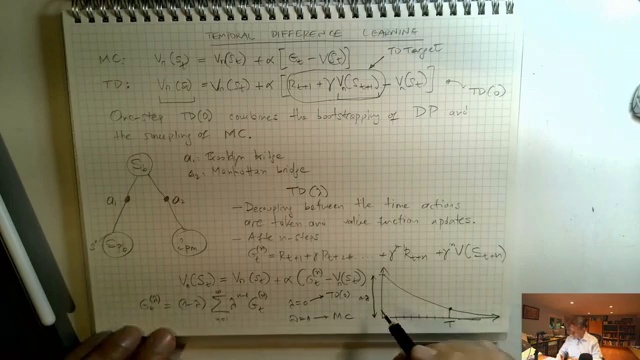 TEMPORAL DIFFERENCE LEARNING
MC: Vπ(St) = Vπ(St) + α [Gt - V(St)]
TD Target
TD: Vπ(St) = Vπ(St) + α [Rt+1 + γ Vπ(St+1) - Vπ(St)]
TD(0)
One-step TD(0) combines the bootstrapping of DP and
the sampling of MC.
a1: Brooklyn bridge
a2: Manhattan bridge
S0
a1
a2
TD(λ)
- Decoupling between the time actions
are taken and value function updates.
- After n-steps
Gt(n) = Rt+1 + γ Rt+2 + γ^n-1 Rt+n + γ^n V(St+n)
Vπ(St) = Vπ(St) + α (Gt(λ) - Vπ(St))
Gt(λ) = (1-λ) Σ n=1 λ^n-1 Gt(n)
λ=0 → TD(0)
λ=1 → MC
1-λ
T